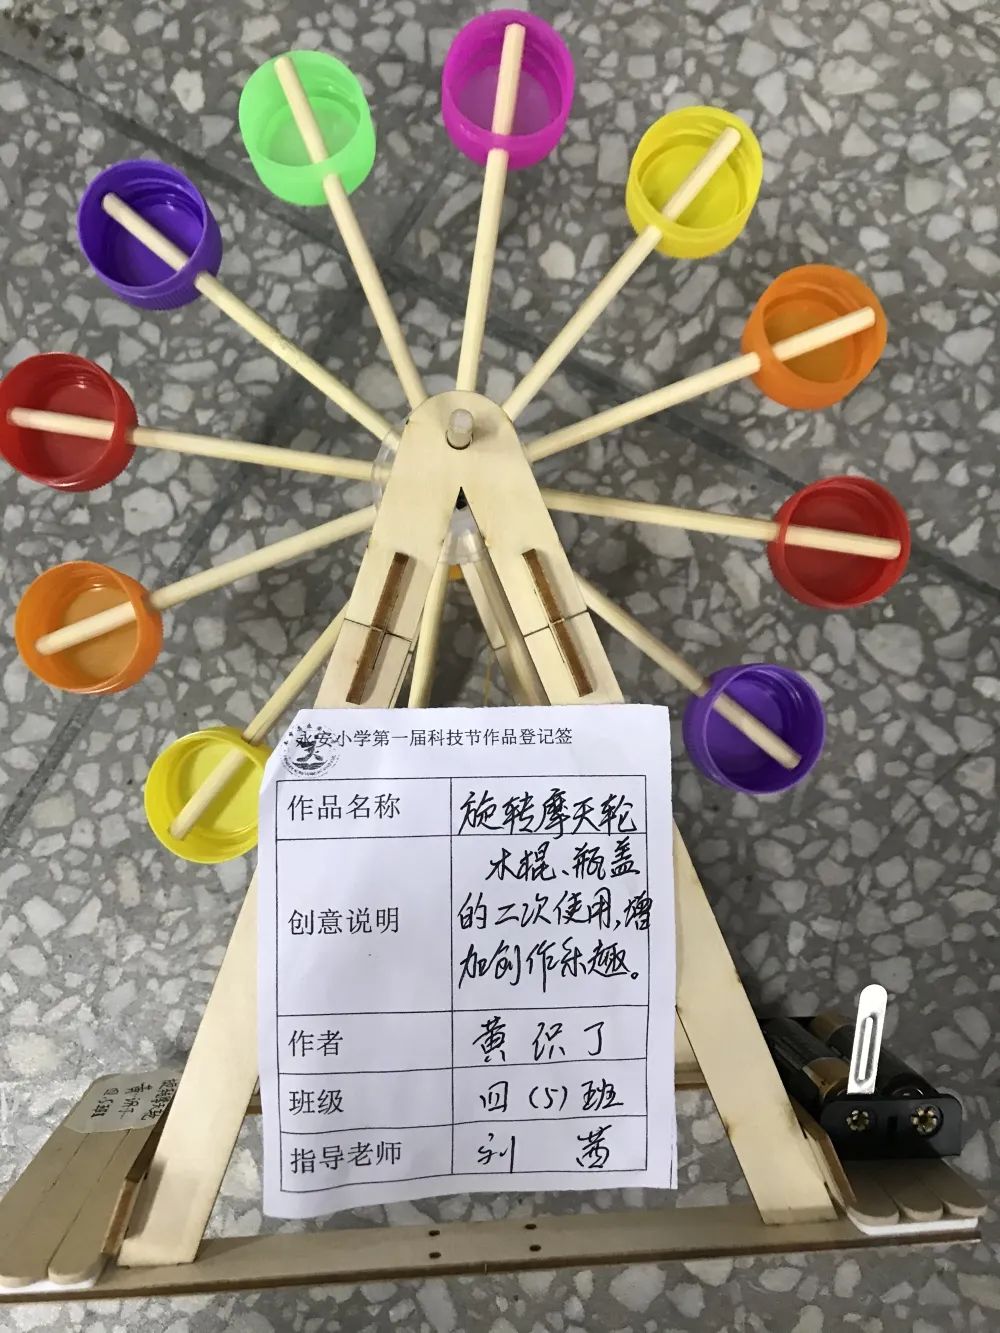 永安小学第一届科技节作品登记签
作品名称
旋转摩天轮
创意说明
木棍、瓶盖
的二次使用,增
加创作乐趣。
作者
黄识了
班级
四(5)班
指导老师
刘 茜